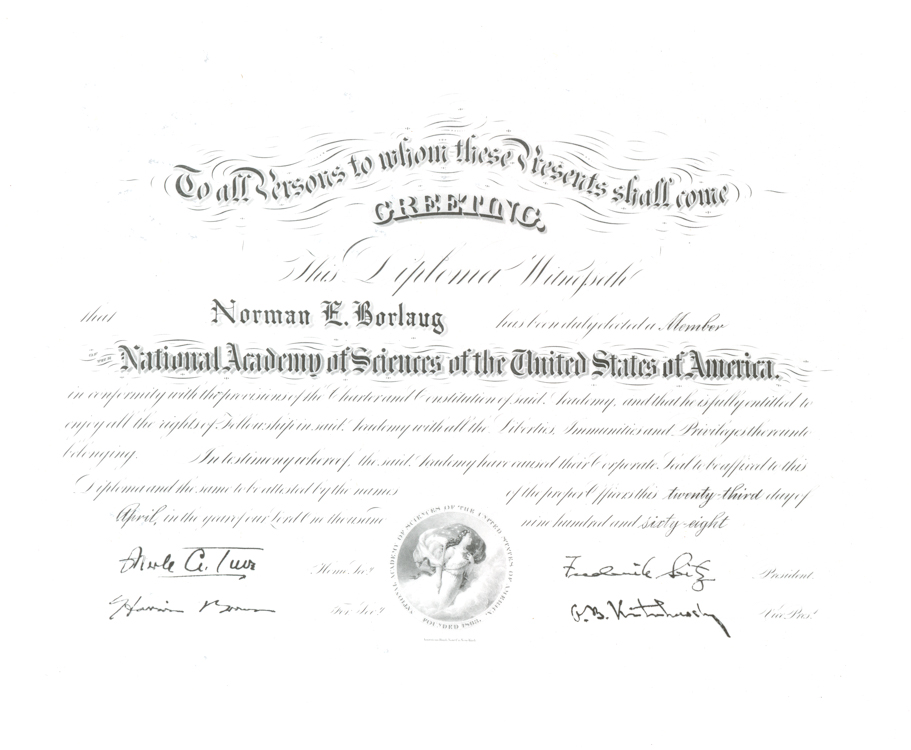 To all Persons to whom these Presents shall come
GREETING.
This Diploma Witnesseth
that Norman E. Borlaug has been duly elected a Member
OF THE National Academy of Sciences of the United States of America.
in conformity with the provisions of the Charter and Constitution of said Academy, and that he is fully entitled to
enjoy all the rights of Fellowship in said Academy with all the Liberties, Immunities and Privileges thereunto
belonging. In testimony whereof, the said Academy have caused their Corporate Seal to be affixed to this
Diploma and the same to be attested by the names of the proper Officers this twenty-third day of
April, in the year of our Lord One thousand nine hundred and sixty-eight
Merle A. Tuve Home Sec.y
Frederick Seitz President.
Harrison Brown For. Sec.y
G. B. Kistiakowsky Vice Pres.t
NATIONAL ACADEMY OF SCIENCES OF THE UNITED STATES OF AMERICA.
FOUNDED 1863.